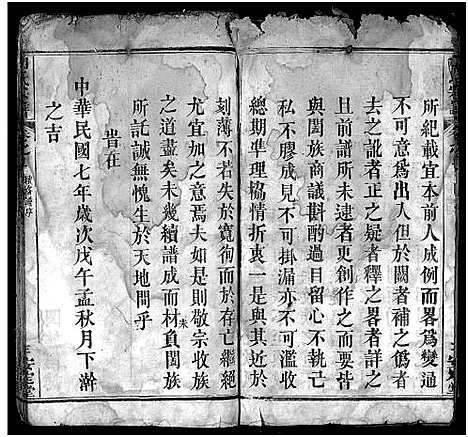 所紀載宜本前人成例而畧為變通
不可意為出入但於闕者補之僞者
去之訛者正之疑者釋之畧者詳之
且前譜所未逮者更創作之而要
與閤族商議斟酌過目留心不不膠
私不膠成見不可掛漏亦不可濫收
總期準理協情折衷一是與其近於
刻薄不若失於寬徇而於存亡繼絕
尤宜加之意焉夫如是則敬宗收族
之道盡矣未幾續譜成而材未負閤族
所託誠無愧生於天地間乎
旹在
中華民國七年歲次戊午孟秋月下澣
之吉